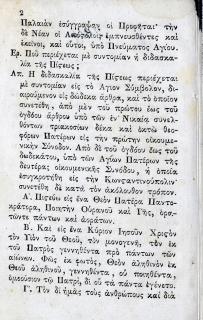 2
Παλαιὰν ἐσύγγραψαν οἱ Προφῆται· τὴν
δὲ Νέαν οἱ Ἀπόστολοι ἐμπνευσθέντες καὶ
ἐκεῖνοι, καὶ οὗτοι, ὑπὸ Πνεύματος Ἁγίου.
Ερ. Ποῦ περιέχεται μὲ συντομίαν ἡ διδασκα-
λία τῆς Πίστεως;
Απ. Ἡ διδασκαλία τῆς Πίστεως περιέχεται
μὲ συντομίαν εἰς τὸ Ἅγιον Σύμβολον, δι-
αιρούμενον εἰς δώδεκα ἄρθρα, καὶ τὸ ὁποῖον
συνετέθη, ἀπὸ μὲν τοῦ πρώτου ἕως τοῦ
ὀγδόου ἄρθρου ὑπὸ τῶν ἐν Νικαίᾳ συνελ-
θόντων τριακοσίων δέκα καὶ ὀκτὼ θεο-
φόρων Πατέρων εἰς τὴν πρώτην οἰκουμε-
νικὴν Σύνοδον. Ἀπὸ δὲ τοῦ ὀγδόου ἕως τοῦ
δωδεκάτου, ὑπὸ τῶν Ἁγίων Πατέρων τῆς
δευτέρας οἰκουμενικῆς Συνόδου, ἡ ὁποία
ἐσυγκροτήθη εἰς τὴν Κωνσταντινούπολιν·
συνετέθη δὲ κατὰ τὸν ἀκόλουθον τρόπον.
Α. Πιστεύω εἰς ἕνα Θεὸν Πατέρα Παντο-
κράτορα, Ποιητὴν Οὐρανοῦ καὶ Γῆς, ὁρα-
τῶντε πάντων καὶ ἀοράτων.
Β. Καὶ εἰς ἕνα Κύριον Ἰησοῦν Χριστὸν
τὸν Υἱὸν τοῦ Θεοῦ, τὸν μονογενῆ, τὸν ἐκ
τοῦ Πατρὸς γεννηθέντα πρὸ πάντων τῶν
αἰώνων. Φῶς ἐκ φωτὸς, Θεὸν ἀληθινὸν ἐκ
Θεοῦ ἀληθινοῦ, γεννηθέντα, οὐ ποιηθέντα,
ὁμοούσιον τῷ Πατρὶ, δι οὗ τὰ πάντα ἐγένετο.
Γ. Τὸν δι ἡμᾶς τοὺς ἀνθρώπους καὶ διὰ